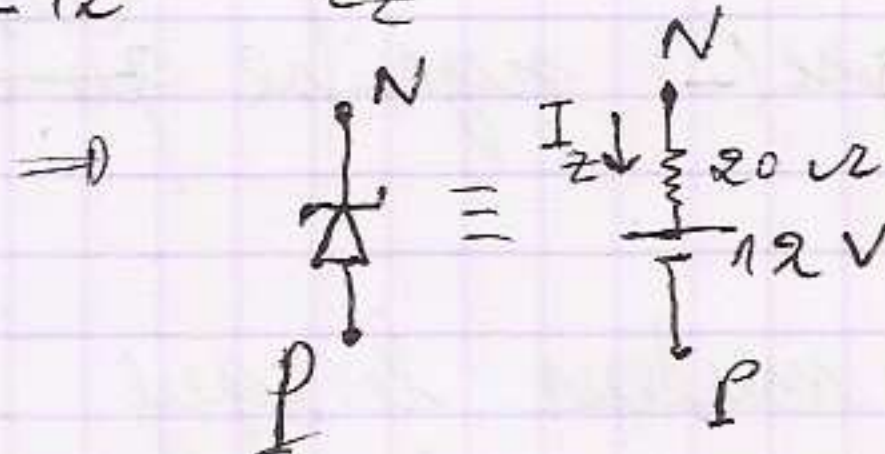 N N
⇒ ≡ I_z ↓ 20 Ω
12 V
P P